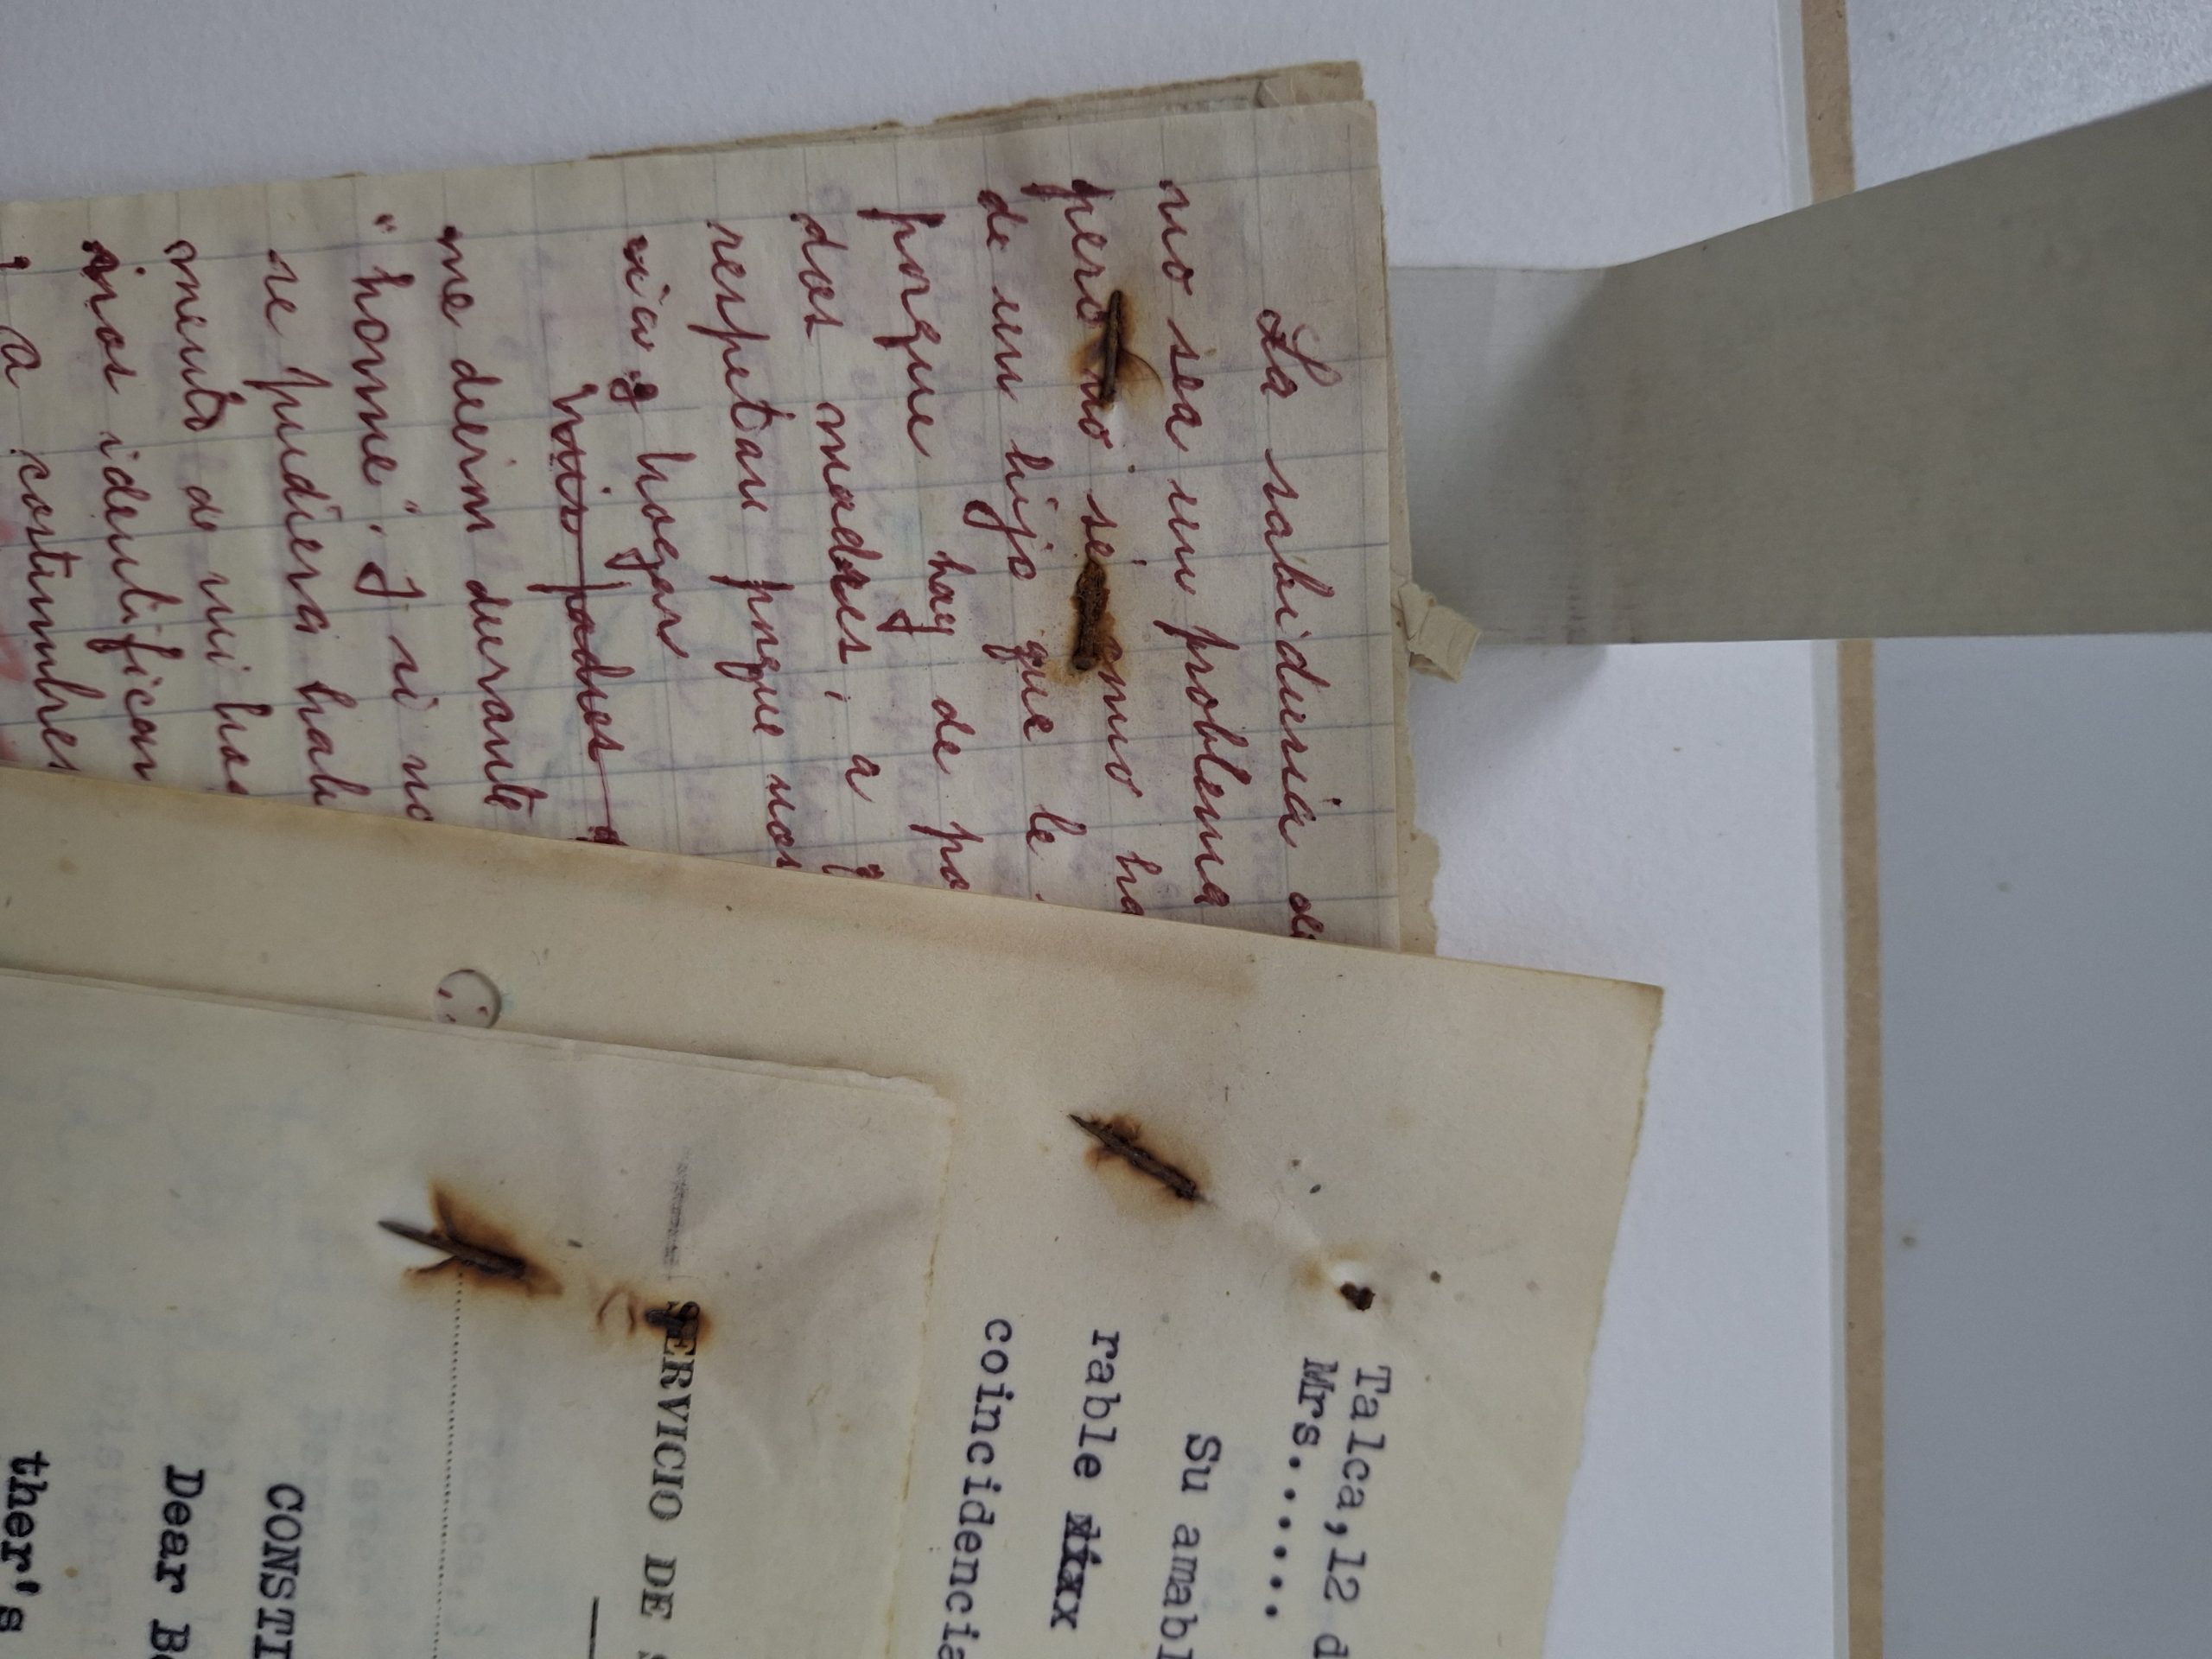 La sabiduria de
no sea un problema
pero no sé como ha
de un hijo que le
porque hay de po
dos madres i a
respetan porque nos
vias y hogar
hvir padres
me deirm durante
"home". Y si no
se pudiera habl
mento de mi ho
nos identifican
a costumbres
Talca,12 d
Mrs.......
Su amabl
rable
coincidencia
SERVICIO DE S
CONSTI
Dear Be
ther's